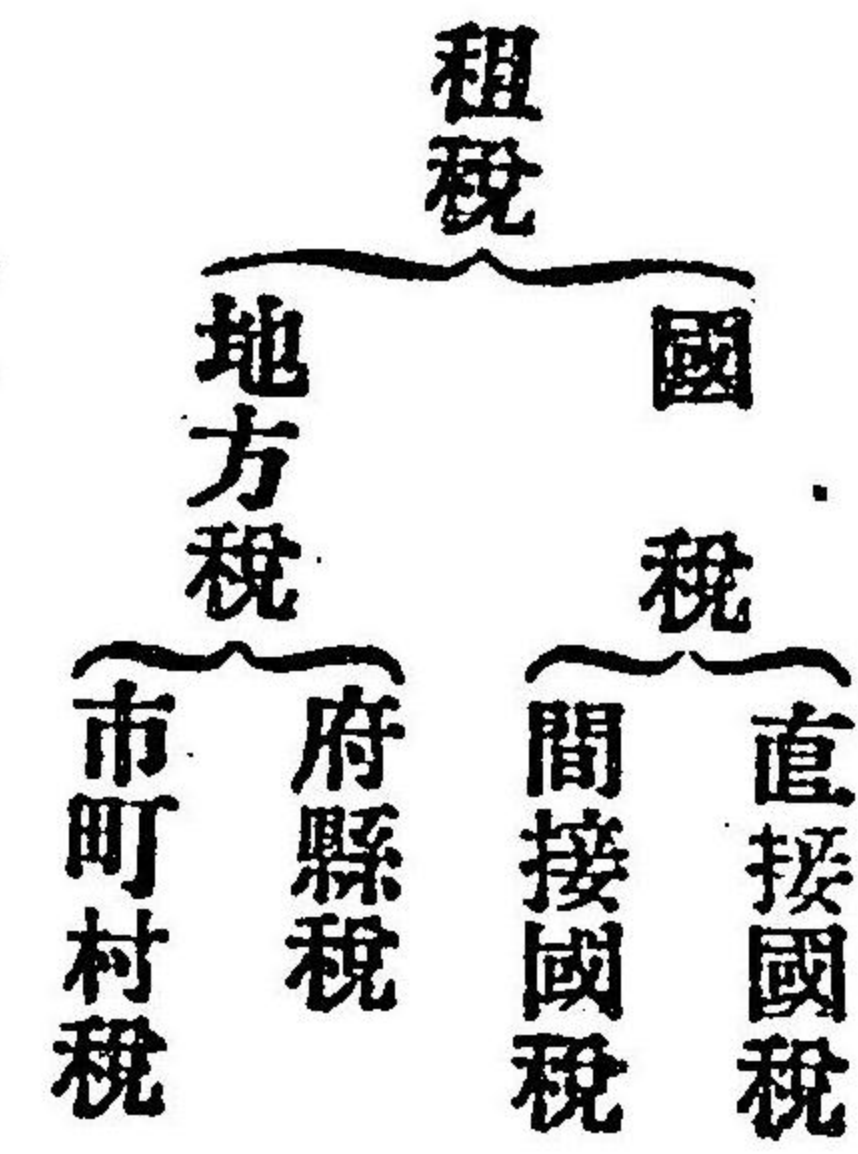 租稅
國稅
直接國稅
間接國稅
地方稅
府縣稅
市町村稅